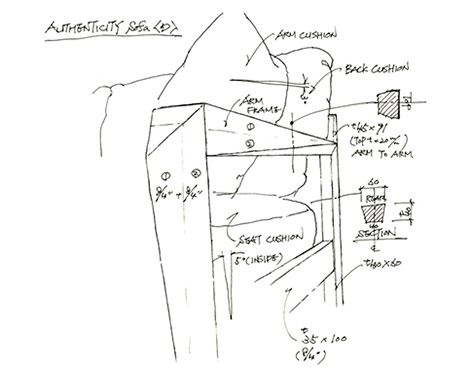 AUTHENTICITY Sofa <D>
ARM CUSHION
BACK CUSHION
ARM
FRAME
①
②
t45 × 91
(TOP t=20%)
ARM TO ARM
① ②
3/4" + 3/4"
50
REAR
SECTION
SEAT CUSHION
5° (INSIDE)
t30 × 50
t
35 × 100
(3/4")